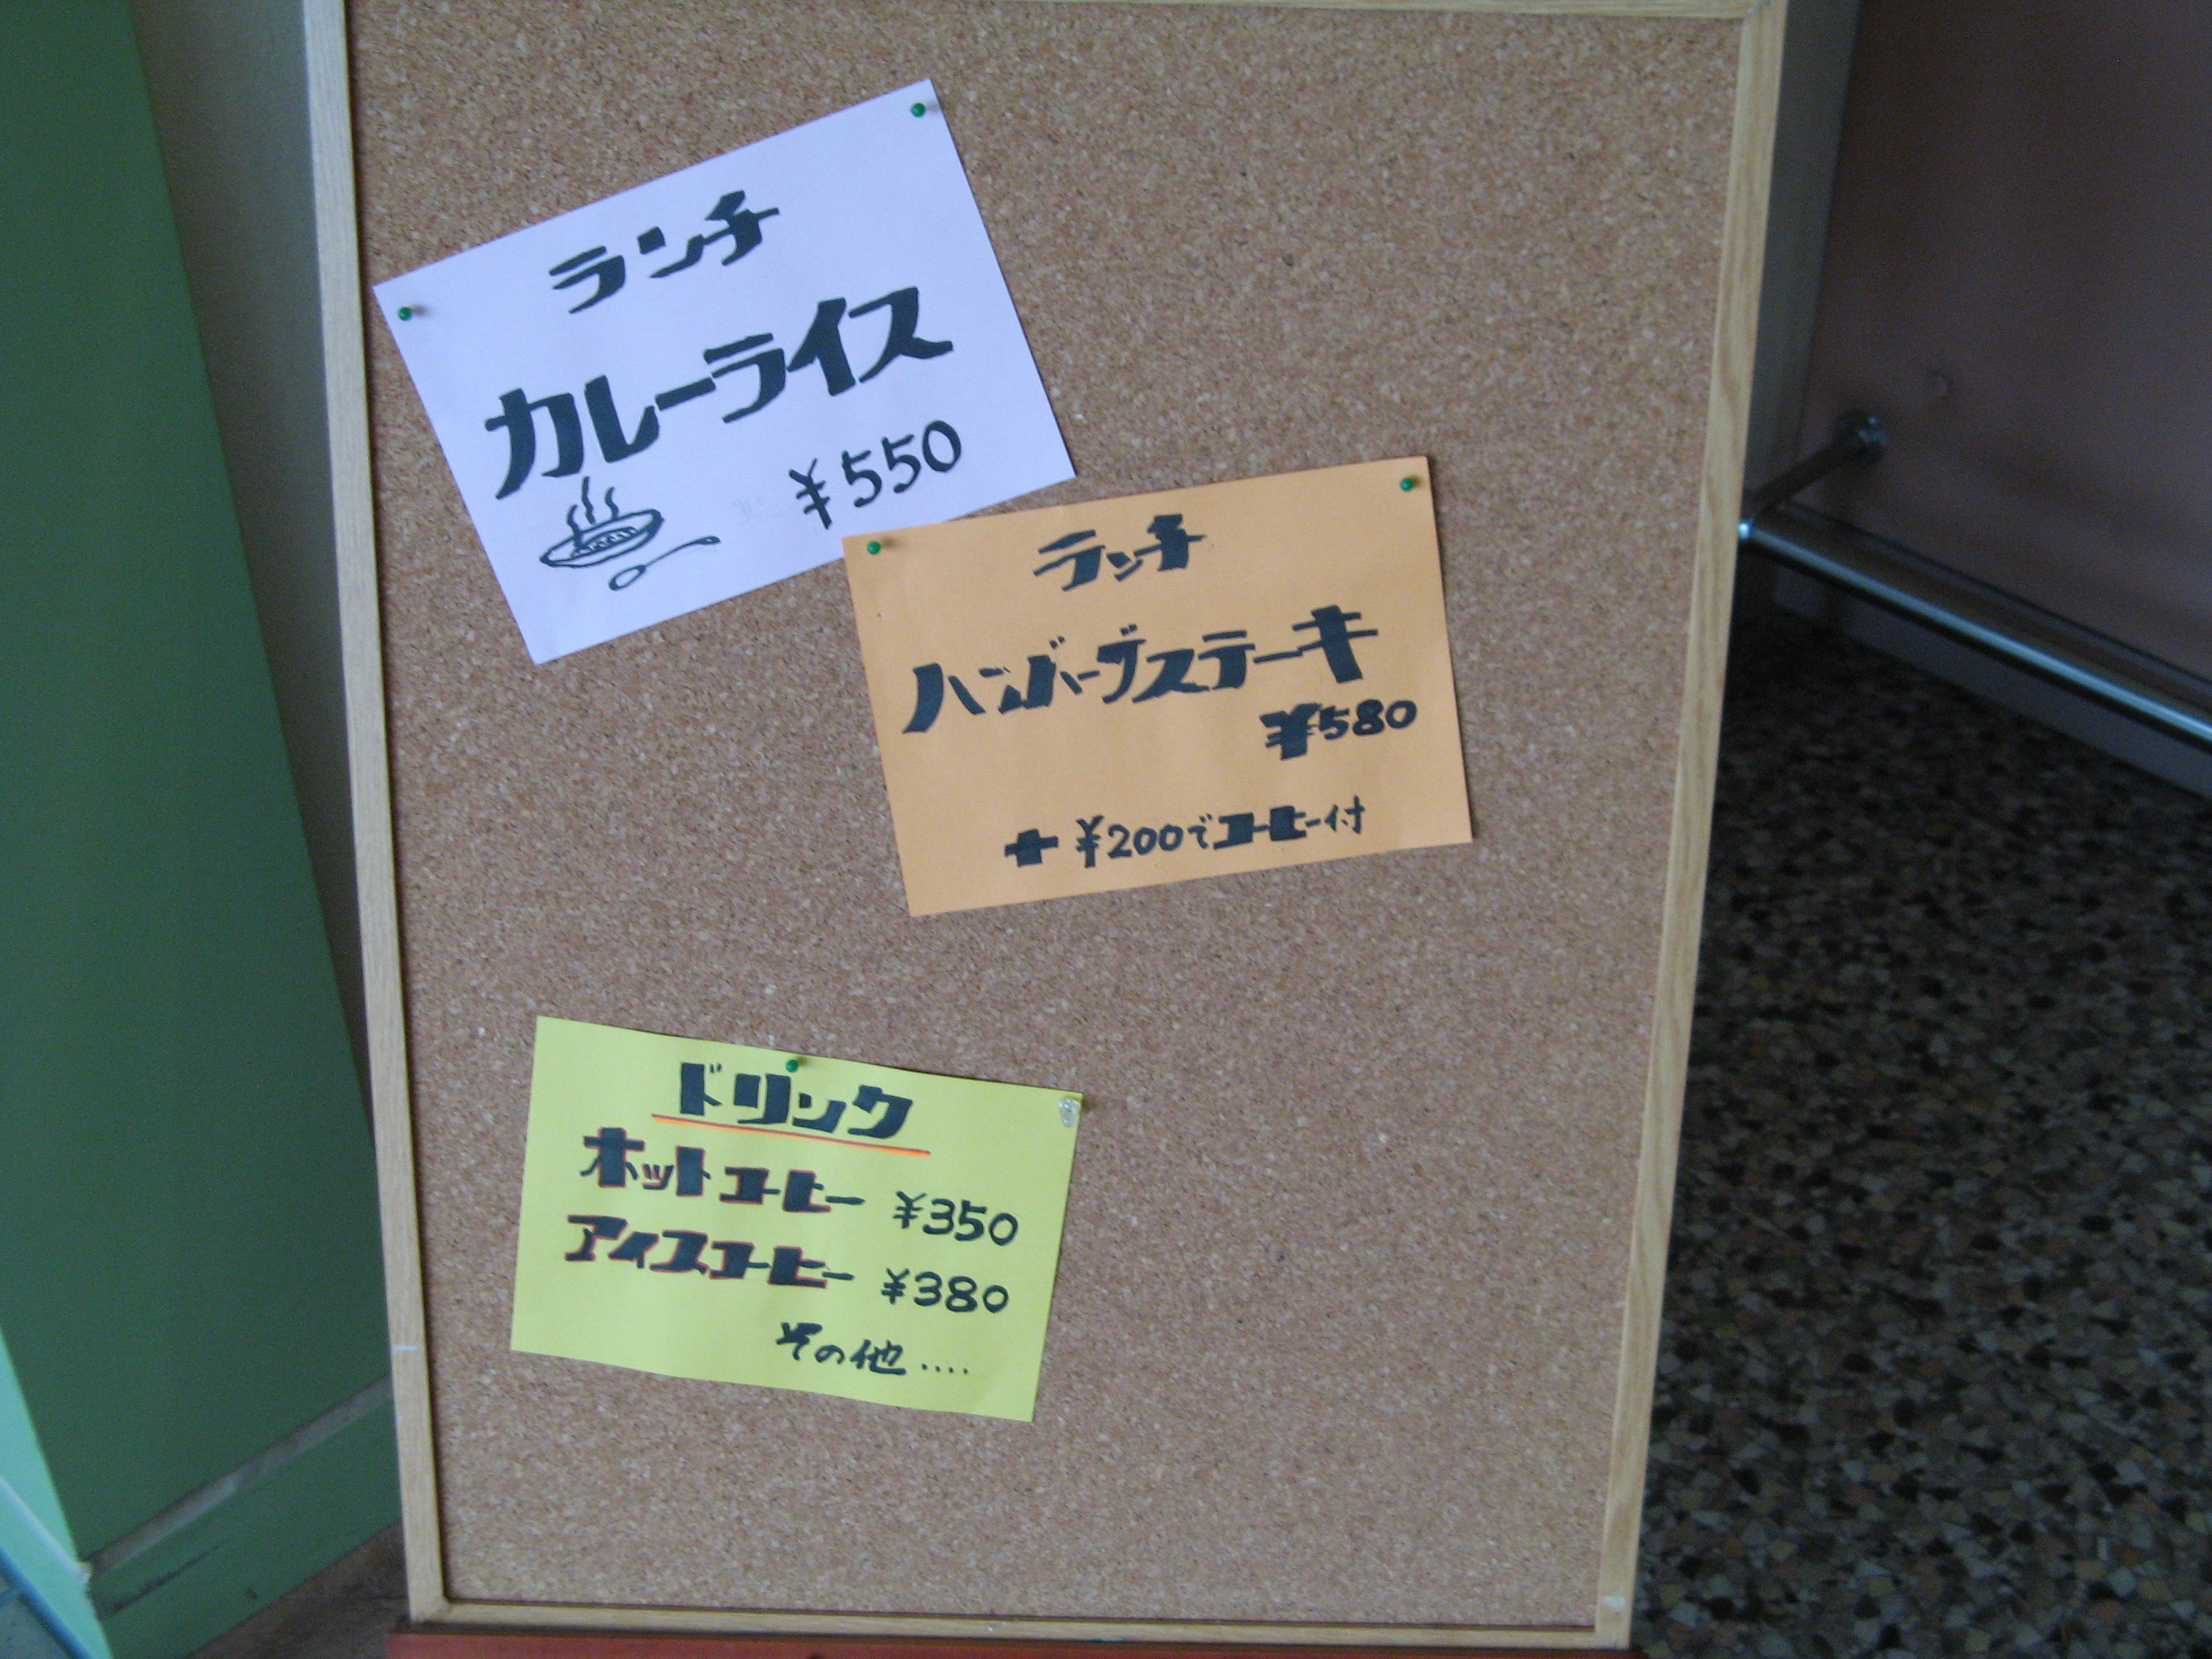 ランチ
カレーライス
¥550
ランチ
ハンバーグステーキ
¥580
+¥200でコーヒー付
ドリンク
ホットコーヒー ¥350
アイスコーヒー ¥380
その他....